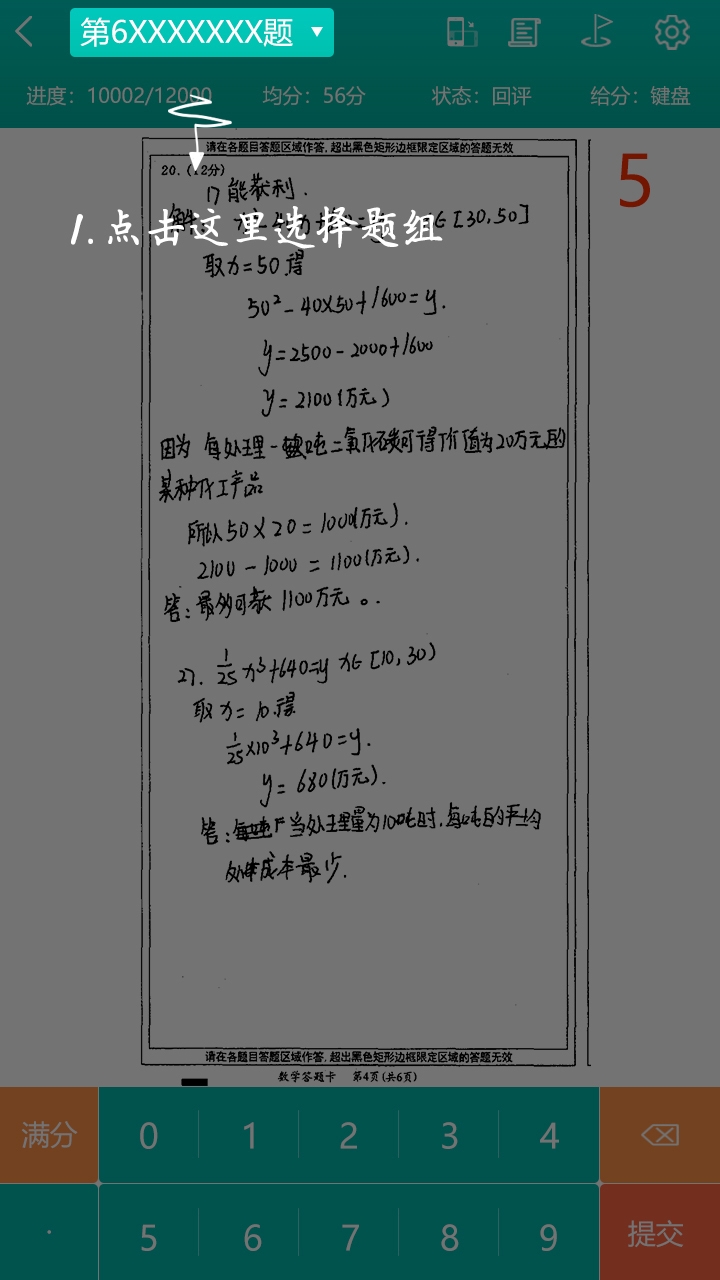 第6XXXXXXX题
进度：10002/12000 均分：56分 状态：回评 给分：键盘
请在各题目答题区域作答，超出黑色矩形边框限定区域的答题无效
5
20．(12分)
1) 能获利．
∈[30,50]
1.点击这里选择题组
取x=50得
50²-40×50+1600=y．
y=2500-2000+1600
y=2100(万元)
因为 每处理一吨二氧化碳可得价值为20万元的
某种化工产品
所以50×20=1000(万元)．
2100-1000=1100(万元)．
答：最多可获1100万元。．
2)．1/25x³+640=y x∈[10,30)
取x=10.得
1/25×10³+640=y．
y=680(万元)．
答：当处理量为10吨时．每吨的平均
处理成本最少．
请在各题目答题区域作答，超出黑色矩形边框限定区域的答题无效
数学答题卡 第4页(共6页)
满分 0 1 2 3 4
· 5 6 7 8 9 提交